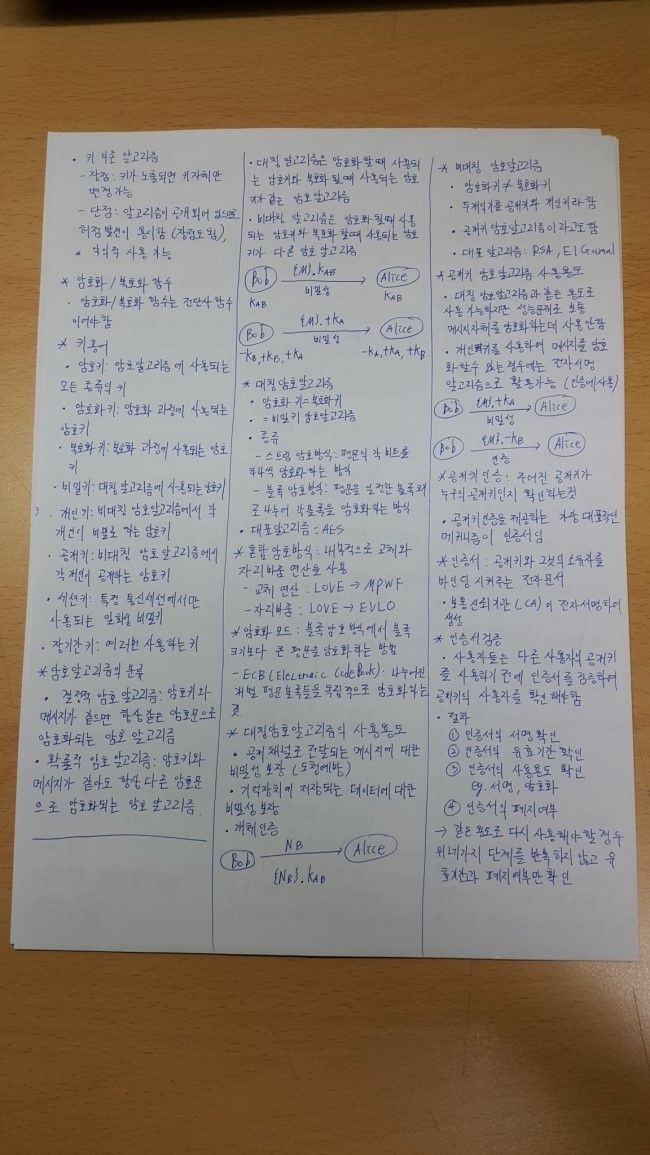 • 키 의존 알고리즘
- 장점: 키가 노출되면 키 자체만
변경 가능
- 단점: 알고리즘이 공개되어 있으므로
허점 발견이 용이함 (장점도 됨),
악의적 사용 가능
* 암호화 / 복호화 함수
• 암호화/복호화 함수는 전단사 함수
이어야 함
* 키 용어
• 암호키: 암호알고리즘에 사용되는
모든 종류의 키
• 암호화키: 암호화 과정에 사용되는
암호키
• 복호화키: 복호화 과정에 사용되는 암호
키
• 비밀키: 대칭 알고리즘에 사용되는 암호키
• 개인키: 비대칭 암호알고리즘에서 각
개인이 비밀로 하는 암호키
• 공개키: 비대칭 암호알고리즘에서
각 개인이 공개하는 암호키
• 세션키: 특정 통신세션에서만
사용되는 일회성 비밀키
• 장기간키: 여러번 사용하는 키
*암호알고리즘의 분류
• 결정적 암호 알고리즘: 암호키와
메시지가 같으면 항상 같은 암호문으로
암호화되는 암호 알고리즘
• 확률적 암호 알고리즘: 암호키와
메시지가 같아도 항상 다른 암호문
으로 암호화되는 암호 알고리즘.
• 대칭 알고리즘은 암호화 할 때 사용되
는 암호키와 복호화 될 때 사용되는 암호
키가 같은 암호 알고리즘
• 비대칭 알고리즘은 암호화 될 때 사용
되는 암호키와 복호화 할 때 사용되는 암호
키가 다른 암호 알고리즘
Bob {M}.KAB Alice
KAB 비밀성 KAB
Bob {M}.+KA Alice
비밀성
-KB,+KB,+KA -KA,+KA,+KB
* 대칭 암호알고리즘
• 암호화 키=복호화 키
• = 비밀키 암호알고리즘
• 종류
- 스트림 암호방식: 평문의 각 비트를
하나씩 암호화 하는 방식
- 블록 암호방식: 평문을 일정한 블록크기
로 나누어 각 블록을 암호화 하는 방식
• 대표알고리즘: AES
* 혼합 암호방식: 내부적으로 교체와
자리바꿈 연산을 사용
- 교체 연산: LOVE → MPWF
- 자리바꿈: LOVE → EVLO
* 암호화 모드: 블록 암호 방식에서 블록
크기보다 큰 평문을 암호화하는 방법
- ECB(Electronic CodeBook): 나누어진
개별 평문 블록들을 독립적으로 암호화 하는
것.
* 대칭암호알고리즘의 사용용도
• 공개 채널로 전달되는 메시지에 대한
비밀성 보장 (도청예방)
• 기억장치에 저장되는 데이터에 대한
비밀성 보장
• 개체인증
Bob NB Alice
{NB}.KAB
* 비대칭 암호알고리즘
• 암호화키 ≠ 복호화키
• 두개의 키를 공개키와 개인키라 함
• 공개키 암호알고리즘이라고도 함
• 대표 알고리즘: RSA, ElGamal
* 공개키 암호 알고리즘 사용용도
• 대칭 암호알고리즘과 같은 용도로
사용 가능하지만 성능문제로 보통
메시지자체를 암호화하는데 사용 안함
• 개인키를 사용하여 메시지를 암호
화할 수 있는 경우에는 전자서명
알고리즘으로 활용가능 (인증에 사용)
Bob {M}.+KA Alice
비밀성
Bob {M}.-KB Alice
인증
*공개키인증: 주어진 공개키가
누구의 공개키인지 확인하는것
• 공개키인증을 제공하는 가장 대표적인
메커니즘이 인증서임
* 인증서: 공개키와 그것의 소유자를
바인딩 시켜주는 전자문서
• 보통 신뢰기관 (CA)이 전자서명하여
생성
* 인증서검증
• 사용자들은 다른 사용자의 공개키
를 사용하기 전에 인증서를 검증하여
공개키의 사용자를 확인해야함
• 절차
① 인증서의 서명 확인
② 인증서의 유효기간 확인
③ 인증서의 사용용도 확인
eg. 서명, 암호화
④ 인증서의 폐지여부
→ 같은 용도로 다시 사용해야 할 경우
위 네가지 단계를 반복하지 않고 유
효기간과 폐지여부만 확인